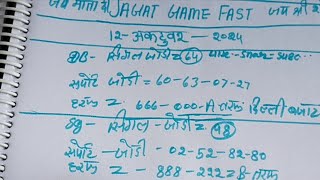 जय माता दी JAGAT GAME FAST जय श्री
12- अक्टुवर - 2024
DB- सिंगल जोडी = 64
सपोर्ट जोडी = 60-63-07-27
हरूफ z. 666-000-A तरफ दिल्ली बजार
सिंगल - जोडी z 98
सपोर्ट - जोडी - 02-52-82-80
हरूफ z - 888-222 z B- तरफ